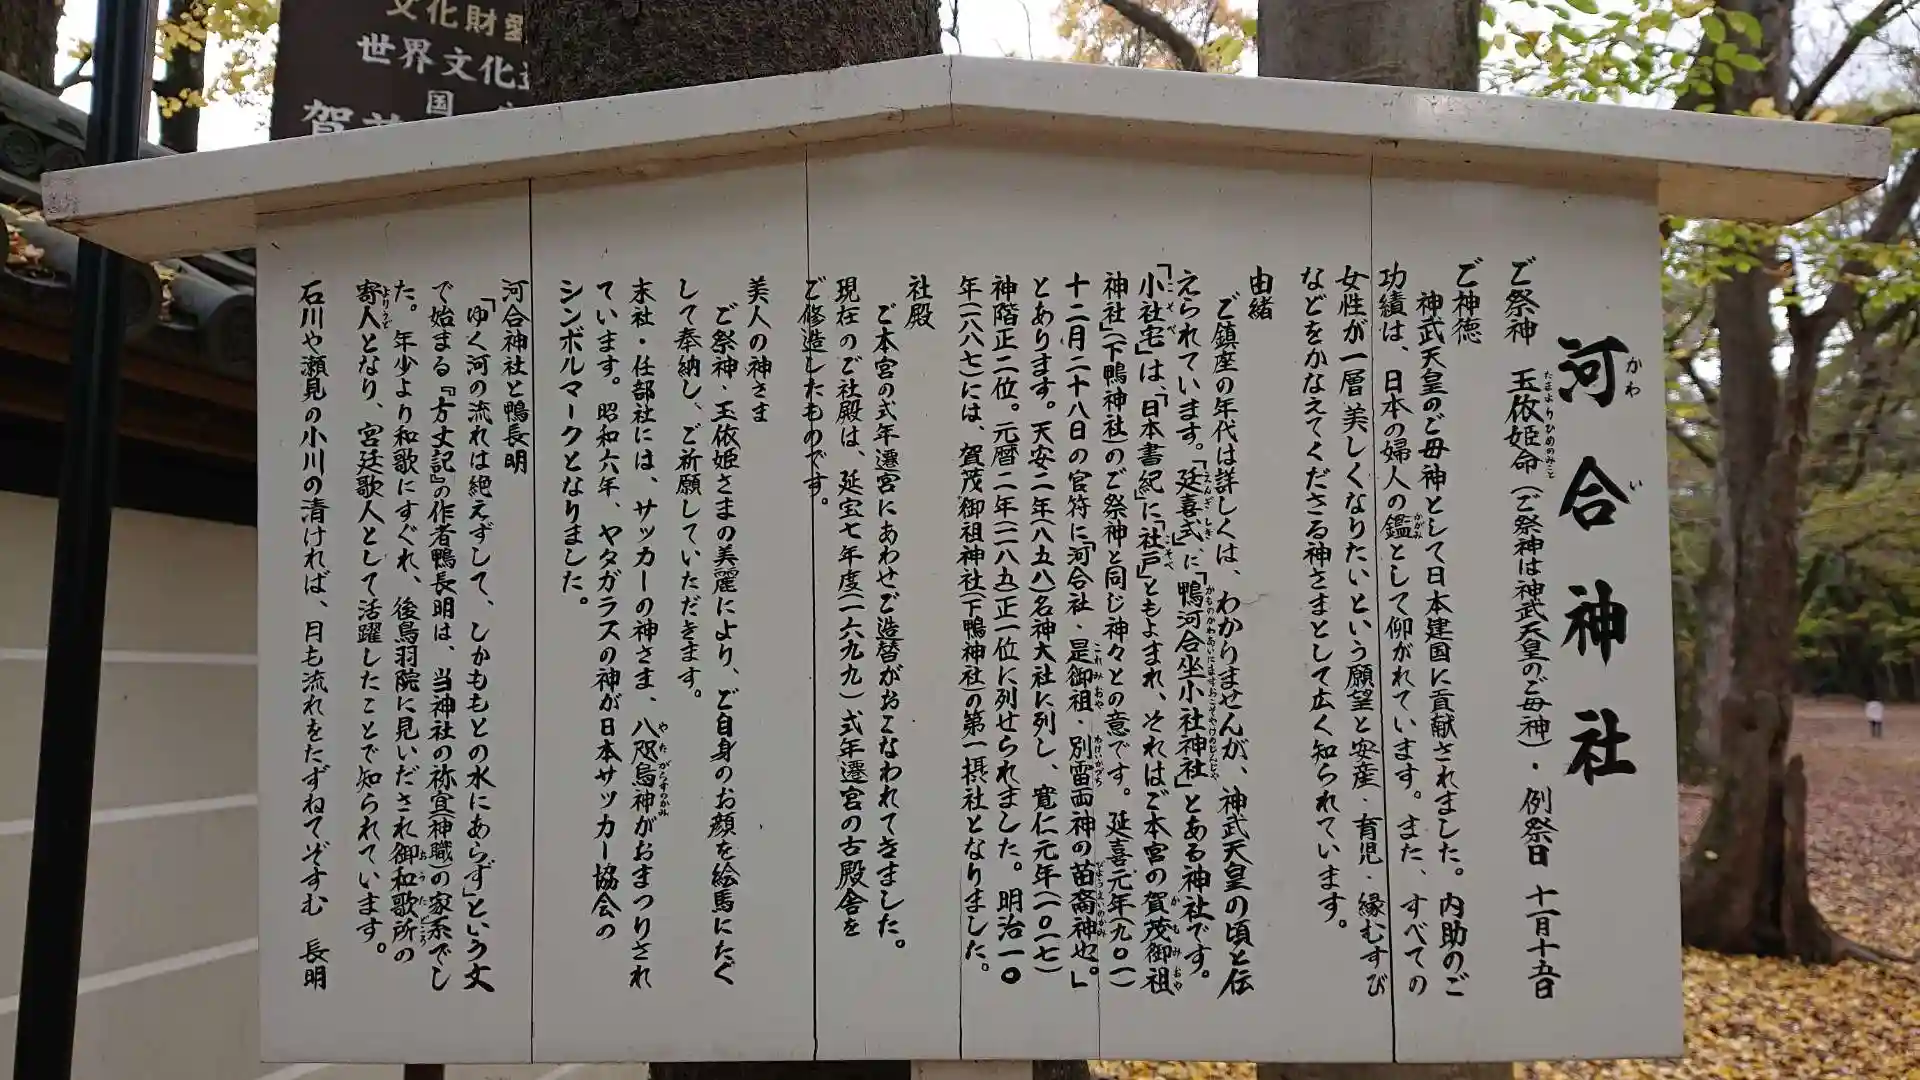 河合神社
ご祭神　玉依姫命（ご祭神は神武天皇のご母神）・例祭日　十一月十五日
ご神徳
神武天皇のご母神として日本建国に貢献されました。内助のご
功績は、日本の婦人の鑑として仰がれています。また、すべての
女性が一層美しくなりたいという願望と安産・育児・縁むすび
などをかなえてくださる神さまとして広く知られています。
由緒
ご鎮座の年代は詳しくは、わかりませんが、神武天皇の頃と伝
えられています。「延喜式」に「鴨河合坐小社神社」とある神社です。
「小社宅」は、「日本書紀」に「社戸」ともよまれ、それはご本宮の賀茂御祖
神社」（下鴨神社）のご祭神と同じ神々との意です。延喜元年（九〇一）
十二月二十八日の官符に「河合社・是御祖・別雷両神の苗裔神也。」
とあります。天安二年（八五八）名神大社に列し、寛仁元年（一〇一七）
神階正二位。元暦二年（一一八五）正一位に列せられました。明治一〇
年（一八七七）には、賀茂御祖神社（下鴨神社）の第一摂社となりました。
社殿
ご本宮の式年遷宮にあわせご造替がおこなわれてきました。
現在のご社殿は、延宝七年度（一六九九）式年遷宮の古殿舎を
ご修造したものです。
美人の神さま
ご祭神・玉依姫さまの美麗により、ご自身のお顔を絵馬にたく
して奉納し、ご祈願していただきます。
末社・任部社には、サッカーの神さま、八咫烏神がおまつりされ
ています。昭和六年、ヤタガラスの神が日本サッカー協会の
シンボルマークとなりました。
河合神社と鴨長明
「ゆく河の流れは絶えずして、しかももとの水にあらず」という文
で始まる『方丈記』の作者鴨長明は、当神社の祢宜（神職）の家系でし
た。年少より和歌にすぐれ、後鳥羽院に見いだされ御和歌所の
寄人となり、宮廷歌人として活躍したことで知られています。
石川や瀬見の小川の清ければ、月も流れをたずねてぞすむ　長明
文化財
世界文化
国
賀